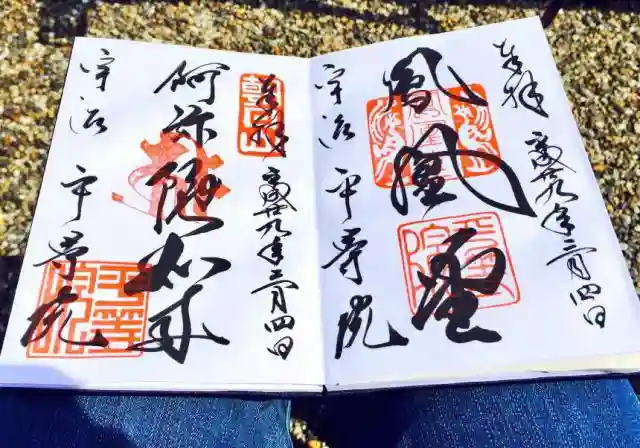 奉拝
平成廿九年二月四日
鳳凰堂
宇治 平等院
奉拝
平成廿九年二月四日
朝日山
阿弥陀如来
宇治 平等院
平等院印